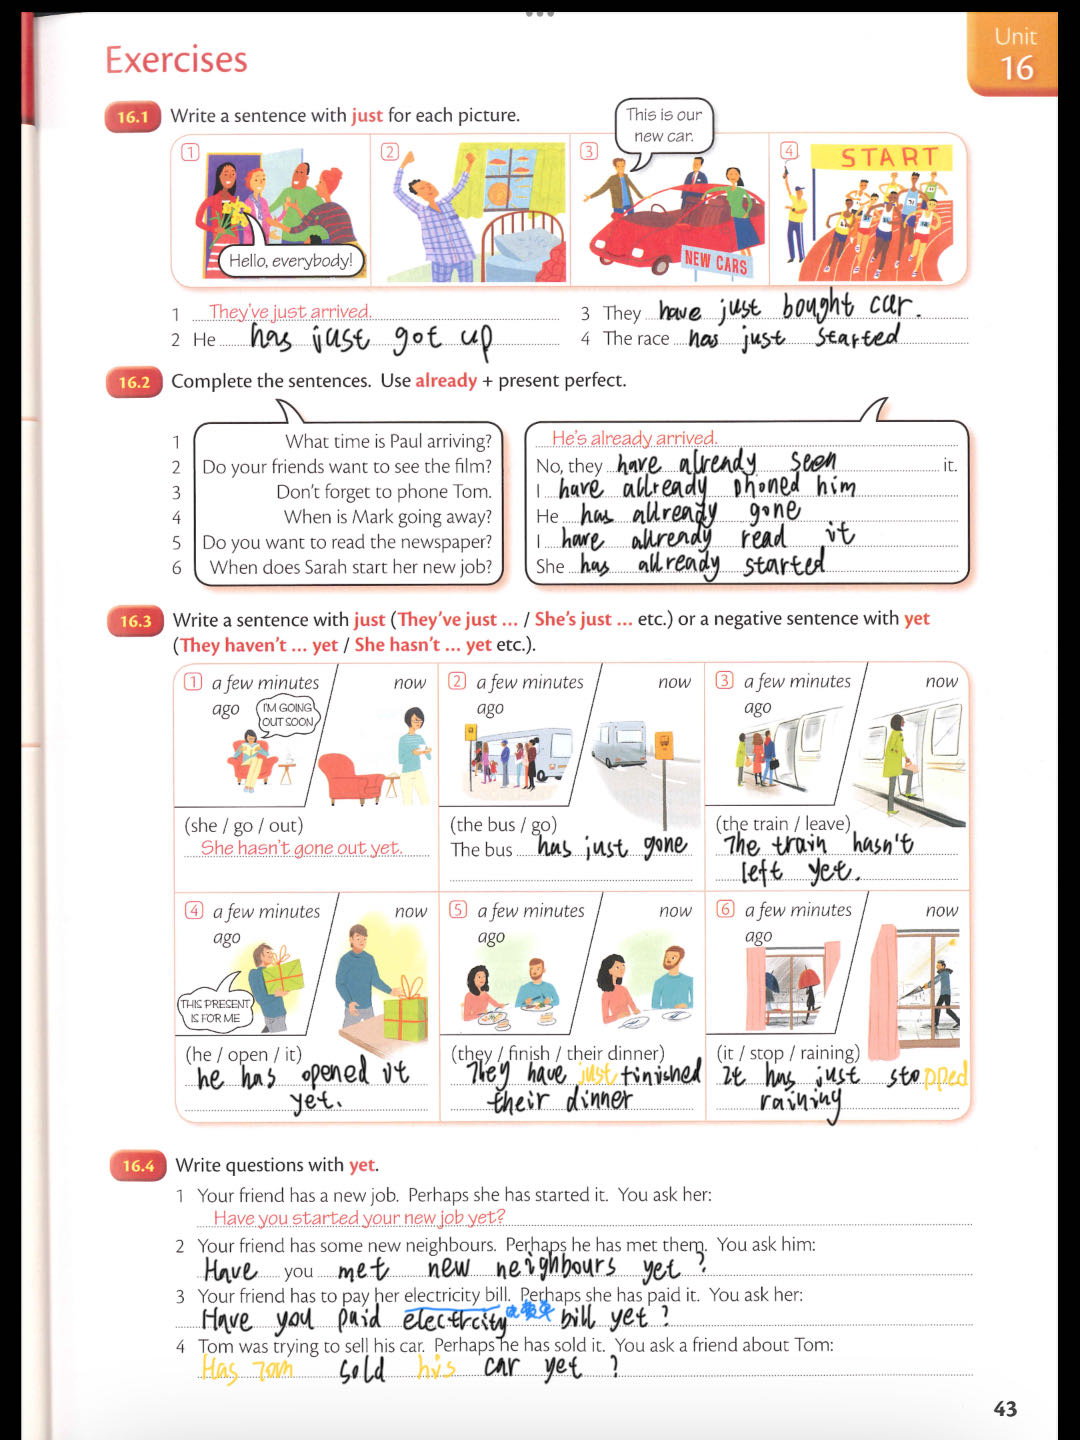 Exercises
Unit
16
16.1 Write a sentence with just for each picture.
This is our
new car.
1
2
3
4
START
Hello, everybody!
NEW CARS
1 They've just arrived.
2 He has just got up
3 They have just bought car.
4 The race has just started
16.2 Complete the sentences. Use already + present perfect.
1 What time is Paul arriving?
2 Do your friends want to see the film?
3 Don't forget to phone Tom.
4 When is Mark going away?
5 Do you want to read the newspaper?
6 When does Sarah start her new job?
He's already arrived.
No, they have already seen it.
I have allready phoned him
He has allready gone
I have allready read it
She has allready started
16.3 Write a sentence with just (They've just ... / She's just ... etc.) or a negative sentence with yet
(They haven't ... yet / She hasn't ... yet etc.).
1 a few minutes ago now
I'M GOING
OUT SOON
(she / go / out)
She hasn't gone out yet.
2 a few minutes ago now
(the bus / go)
The bus has just gone
3 a few minutes ago now
(the train / leave)
The train hasn't
left yet.
4 a few minutes ago now
THIS PRESENT
IS FOR ME
(he / open / it)
he has opened it
yet.
5 a few minutes ago now
(they / finish / their dinner)
They have just finished
their dinner
6 a few minutes ago now
(it / stop / raining)
It has just stopped
raining
16.4 Write questions with yet.
1 Your friend has a new job. Perhaps she has started it. You ask her:
Have you started your new job yet?
2 Your friend has some new neighbours. Perhaps he has met them. You ask him:
Have you met new neighbours yet?
3 Your friend has to pay her electricity bill. Perhaps she has paid it. You ask her:
Have you paid electrcity bill yet?
4 Tom was trying to sell his car. Perhaps he has sold it. You ask a friend about Tom:
Has Tom sold his car yet?
43